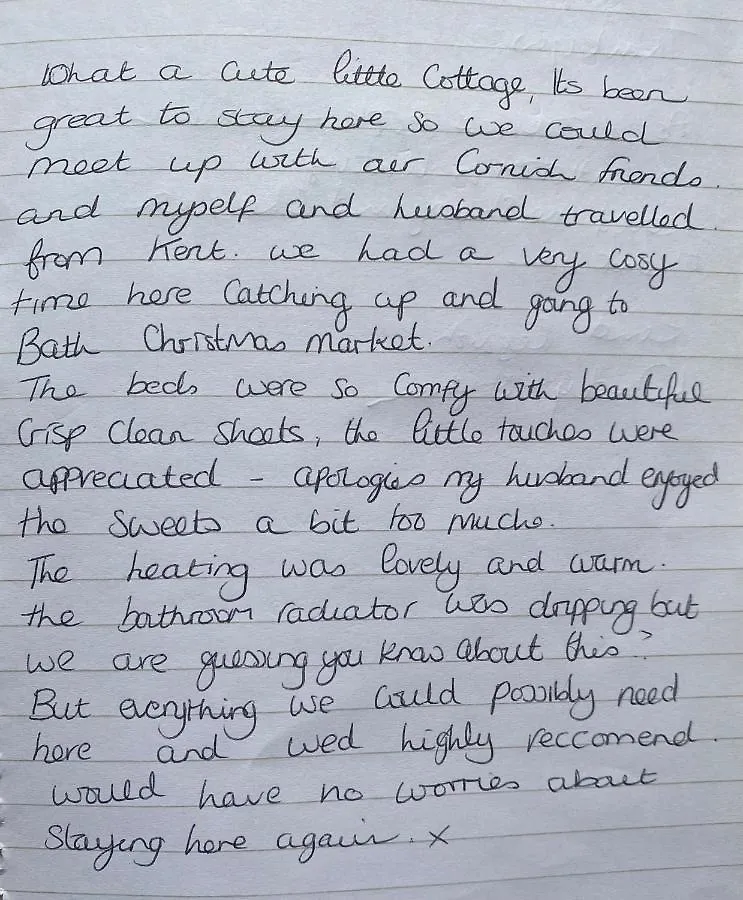 What a cute little Cottage, Its been
great to stay here so we could
meet up with our Cornish friends.
and myself and husband travelled.
from Kent. we had a very cosy
time here Catching up and going to
Bath Christmas market.
The beds were so Comfy with beautiful
Crisp Clean Sheets, the little touches were
appreciated - apologies my husband enjoyed
the sweets a bit too much.
The heating was lovely and warm.
the bathroom radiator was dripping but
we are guessing you know about this?
But everything we could possibly need
here and wed highly reccomend.
would have no worries about
Staying here again. x